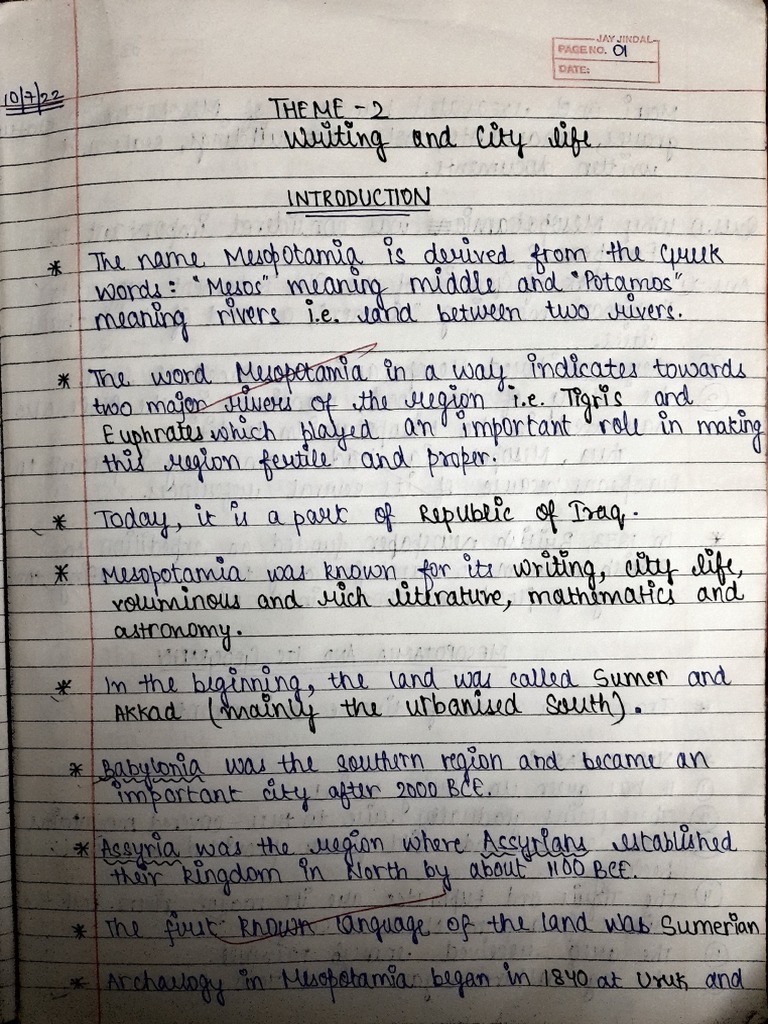 JAY JINDAL
PAGE NO. 01
DATE:
10/7/22
THEME - 2
Writing and City life
INTRODUCTION
* The name Mesopotamia is derived from the Greek
words: "Mesos" meaning middle and "Potamos"
meaning rivers i.e. land between two rivers.
* The word Mesopotamia in a way indicates towards
two major rivers of the region i.e. Tigris and
Euphrates which played an important role in making
this region fertile and proper.
* Today, it is a part of Republic of Iraq.
* Mesopotamia was known for its writing, city life,
voluminous and rich literature, mathematics and
astronomy.
* In the beginning, the land was called Sumer and
AKKad (mainly the urbanised South).
* Babylonia was the southern region and became an
important city after 2000 BCE.
* Assyria was the region where Assyrians established
their kingdom in North by about 1100 BCE.
* The first known language of the land was Sumerian
* Archaelogy in Mesopotamia began in 1840 at Uruk and